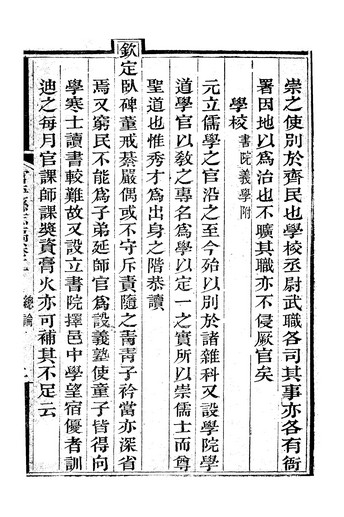 崇之使別於齊民也學校丞尉武職各司其事亦各有衙
署因地以爲治也不曠其職亦不侵厥官矣
學校書院義學附
元立儒學之官沿之至今殆以別於諸雜科又設學院學
道學官以敎之專名爲學以定一之實所以崇儒士而尊
聖道也惟秀才爲出身之階恭讀
欽定卧碑董戒綦嚴偶或不守斥責隨之靑靑子衿當亦深省
焉又窮民不能爲子弟延師官爲設義塾使童子皆得向
學寒士讀書較難故又設立書院擇邑中學望宿優者訓
迪之每月官課師課奬資膏火亦可補其不足云
總論